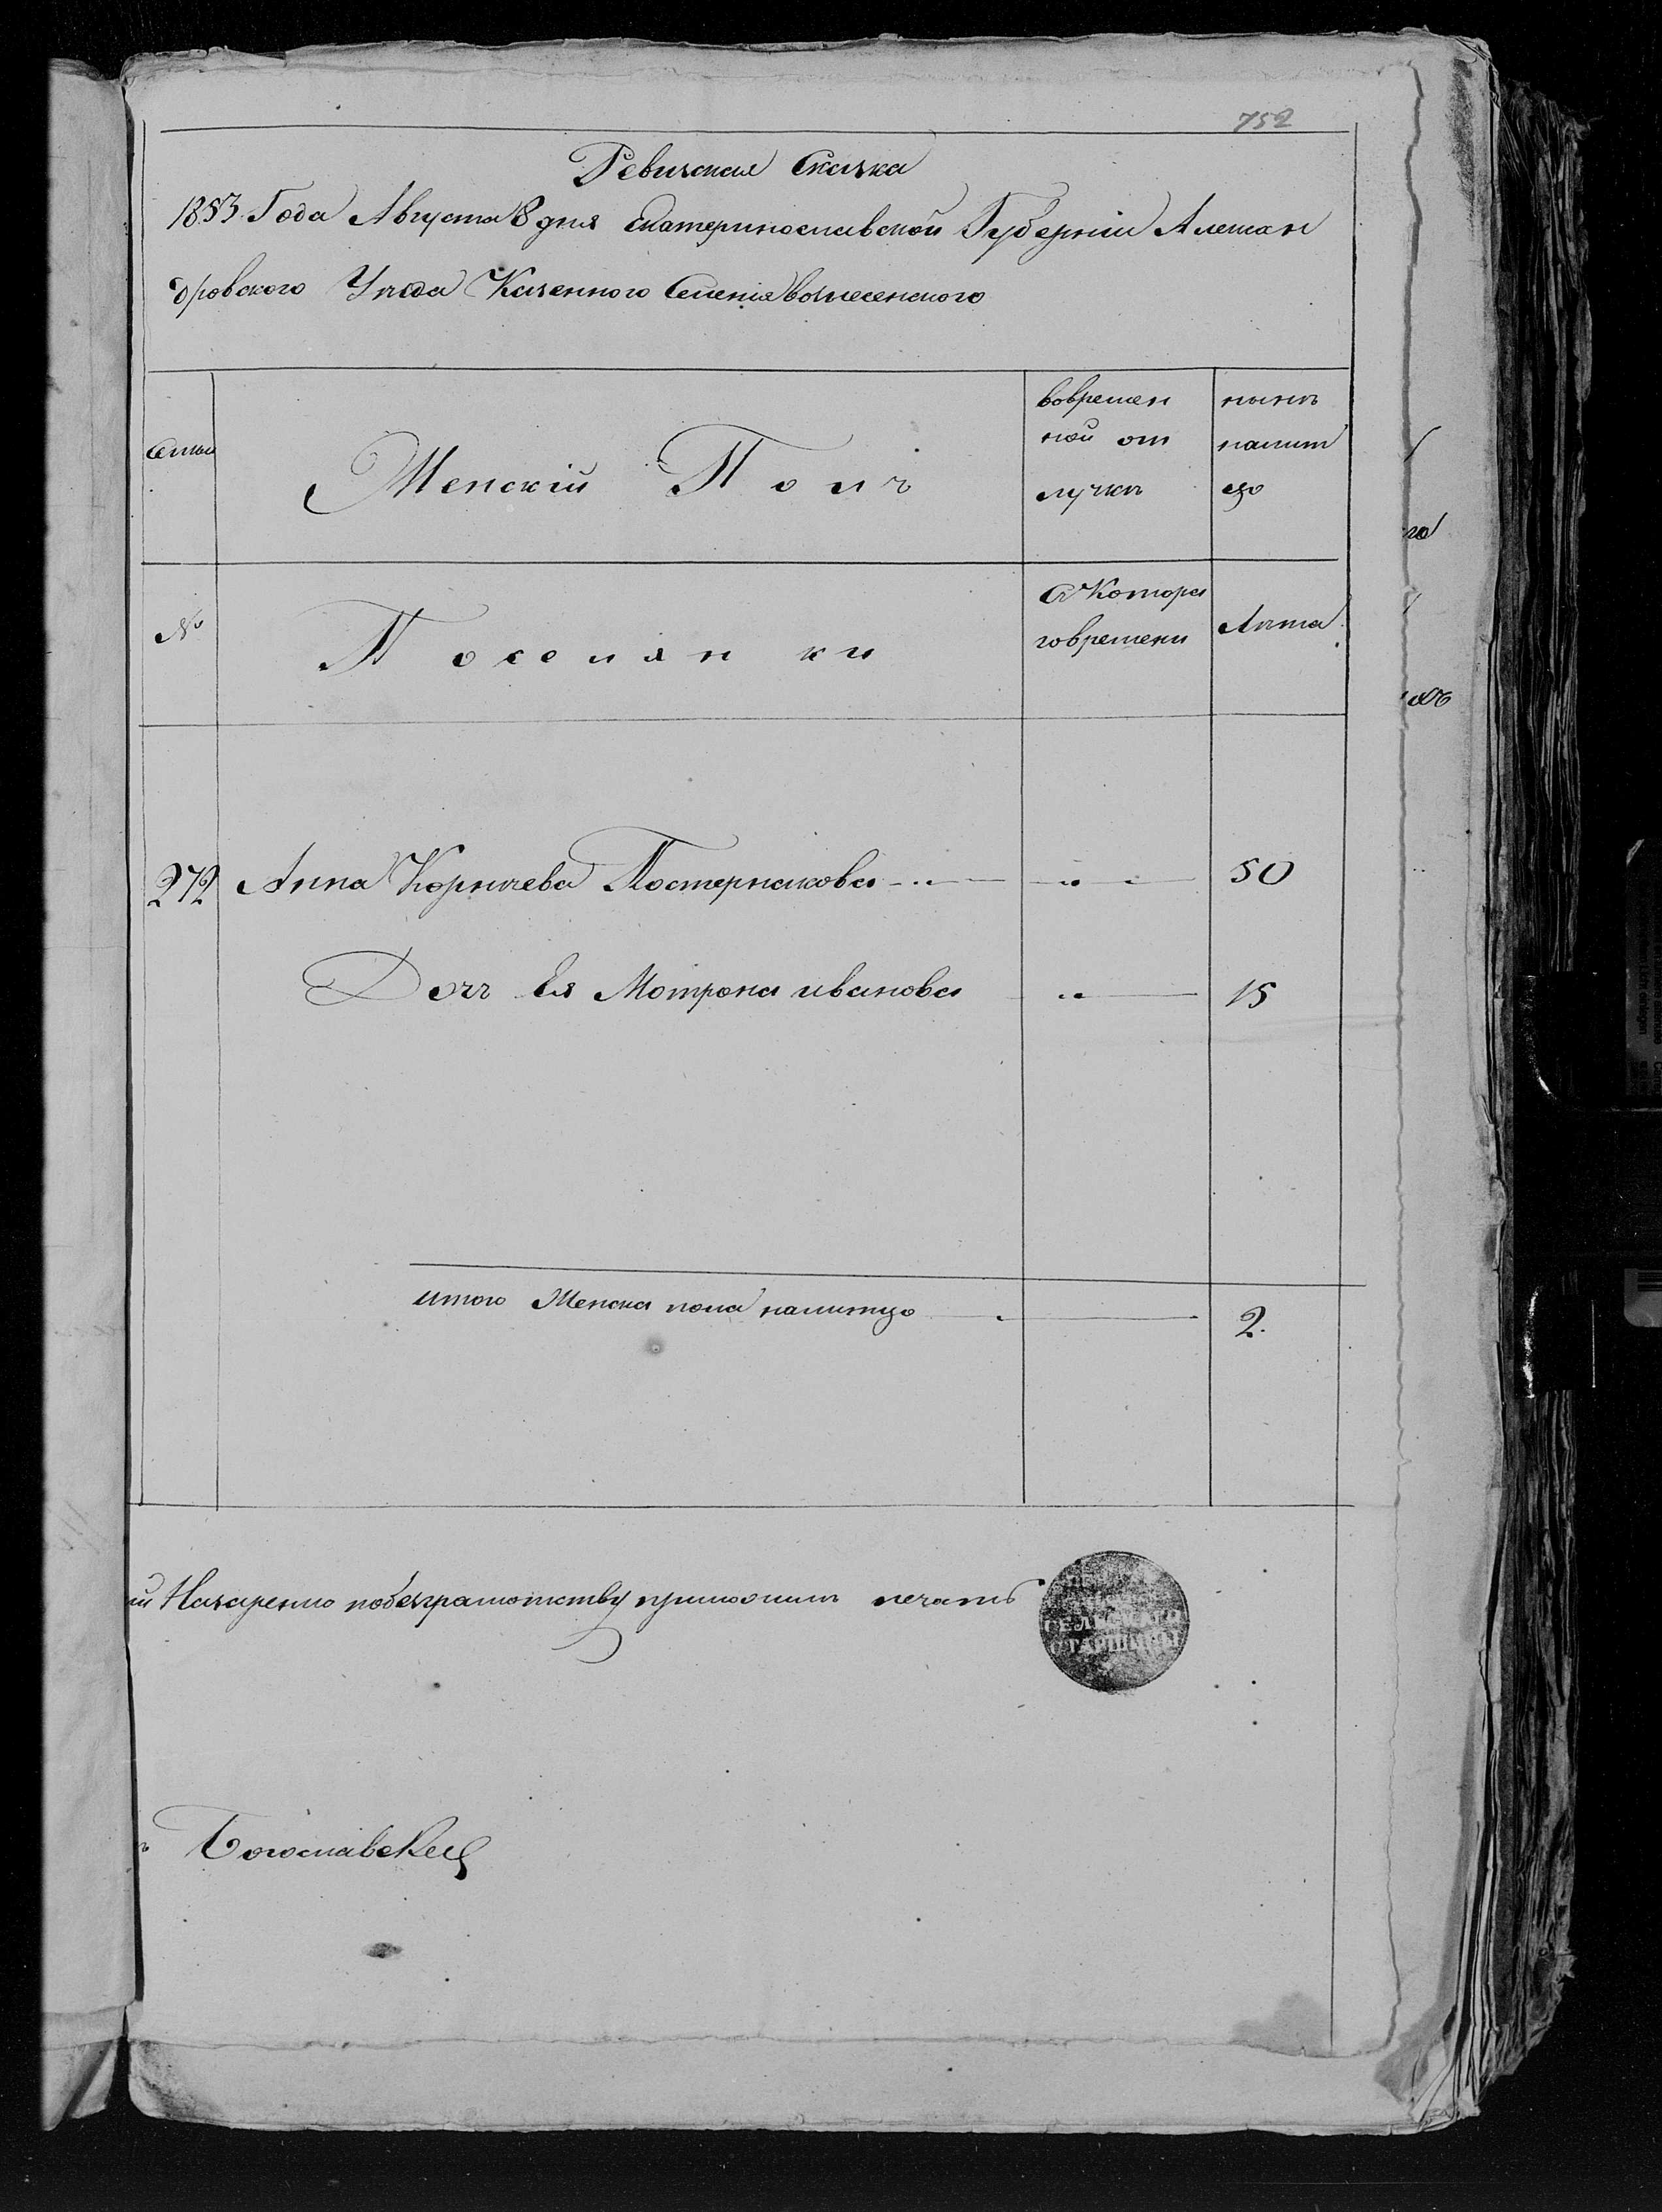 752
Ревизская Сказка
1853 Года Августа 8 дня Екатеринославской Губерніи Алексан
дровского Уезда Казенного Селенія вознесенского
Семьи
Женскій Полъ
вовремен
ной от
лучке
ныне
налит
цо
№
Поселянки
С Котора
говремени
Лета
272 Анна Корнеева Постернакова 50
Дочь Ея Мотрона иванова 15
итого Женска пола налитцо 2.
Назаренко побезграмотству приложилъ печать
СЕЛЬСКАГО
СТАРШИНЫ